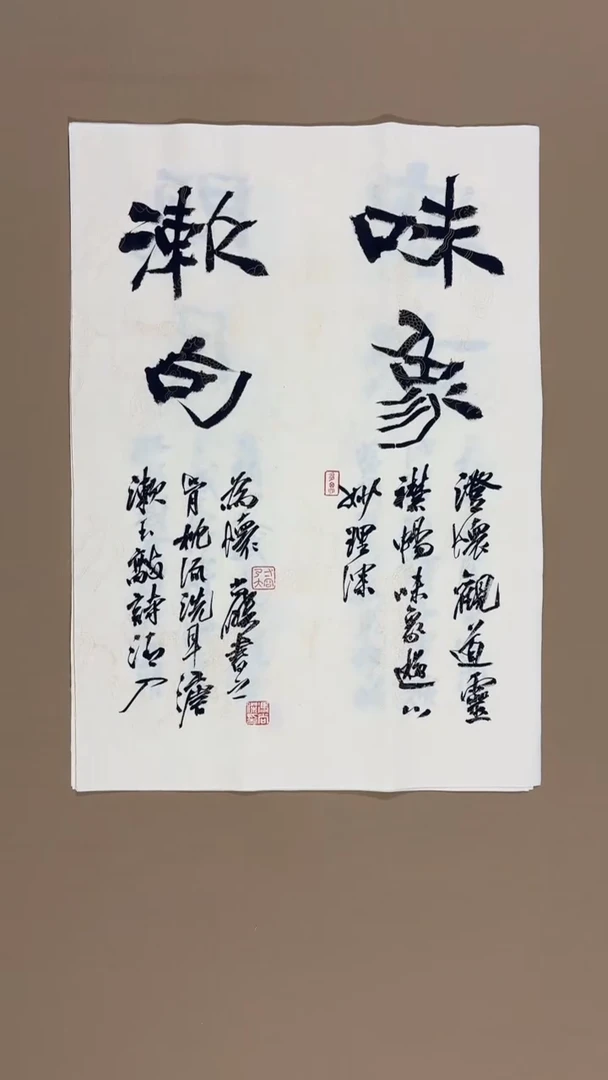 味象
澄懷觀道靈
襟暢味象遊山
妙理深
漱句
漱玉敲詩清入
骨枕流洗耳
為懷 書之